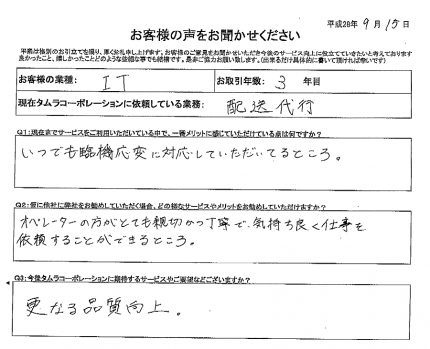 平成28年 9月 15日
お客様の声をお聞かせください
平素は格別のお引立てを賜り、厚くお礼申し上げます。お客様のご意見をお聞かせいただき今後のサービス向上に役立てていきたいと考えております
良かったこと、嬉しかったことどのような些細な事でも結構です。是非ご協力お願い致します。(出来るだけ具体的に書いて頂ければ幸いです)
お客様の業種: IT お取引年数: 3 年目
現在タムラコーポレーションに依頼している業務: 配送代行
Q1:現在までサービスをご利用いただいている中で、一番メリットに感じていただけている点は何ですか?
いつでも臨機応変に対応していただいてるところ。
Q2:仮に他社に弊社をお勧めしていただく場合、どの様なサービスやメリットをお勧めしていただけますか?
オペレーターの方がとても親切かつ丁寧で、気持ち良く仕事を
依頼することができるところ。
Q3:今後タムラコーポレーションに期待するサービスやご要望などございますか?
更なる品質向上。